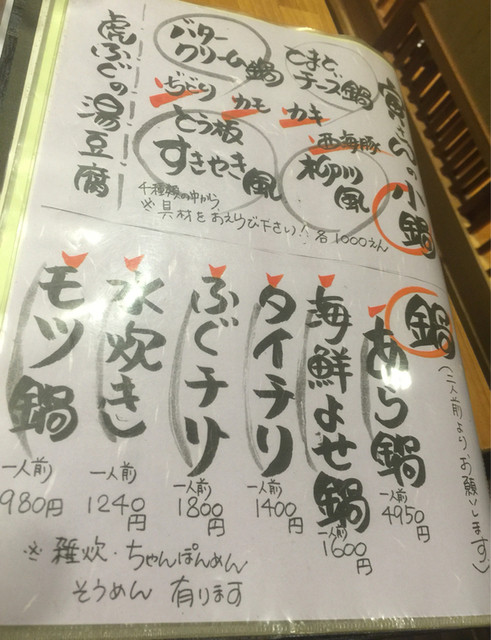 寅さんの小鍋
とまと
チーズ鍋
バター
クリーム鍋
西海豚
カキ
カモ
ぢどり
柳川風
とう板
すきやき風
虎ふぐの湯豆腐
※具材をおえらび下さい！各1000えん
鍋
(二人前よりお願いします。)
あら鍋
一人前
4950円
海鮮よせ鍋
一人前
1600円
タイチリ
一人前
1400円
ふぐチリ
一人前
1800円
水炊き
一人前
1240円
モツ鍋
一人前
980円
※雑炊・ちゃんぽんめん
そうめん 有ります